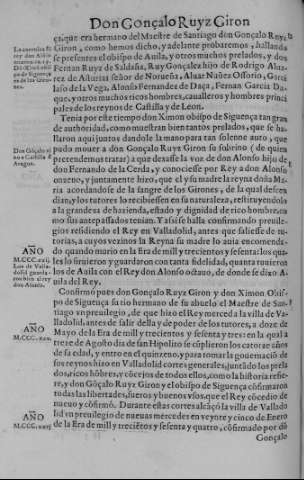 Don Gonçalo Ruyz Giron
ça, que era hermano del Maestre de Santiago don Gonçalo Ruyz
Giron, como hemos dicho, y adelante probaremos, hallando
se presentes el obispo de Auila, y otros muchos prelados, y don
Fernan Ruyz de Saldaña, Ruy Gonçalez hijo de Rodrigo Alua
rez de Asturias señor de Norueña, Aluar Nuñez Ossorio, Garci
laso de la Vega, Alonso Fernandez de Fernan Garcia Du
que, y otros muchos ricos hombres, caualleros y hombres princi
pales de los reynos de Castilla y de Leon.
Tenia por este tiempo don Ximon obispo de Siguença tan gran
de authoridad, como muestran bien tantos prelados, que se ha
llaron aqui juntos dandole la mano para tan solenne auto, que
pudo mouer a don Gonçalo Ruyz Giron su sobrino (de quien
pretendemos tratar) a que dexasse la voz de don Alonso hijo de
don Fernando de la Cerda, y conociesse por Rey a don Alonso
onzeno, y juntamente hizo, que el y su madre la reyna doña Ma
ria acordandose de la sangre de los Girones, de la qual descen
dian, y los tutores lo recibiessen en su naturaleza, restituyendolo
a la grandeza de hazienda, estado y dignidad de rico hombre, co
mo sus antepassados tenian. Y assi se halla confirmando preuile
gios residiendo el Rey en Valladolid, antes que saliesse de tu-
torias, a cuyos vezinos la Reyna su madre lo auia encomenda-
do quando murio en la era de mil y trezientos y sesenta: los qua-
les lo siruieron y guardaron con tanta fidelidad, quanta tuuieron
los de Auila con el Rey don Alonso octauo, de donde se dixo A-
uila del Rey.
Confirmò pues don Gonçalo Ruyz Giron y don Ximon Obis-
po de Siguença su tio hermano de su abuelo el Maestre de San-
tiago vn preuilegio, de que hizo el Rey merced a la villa de Va-
lladolid, antes de salir della y de poder de los tutores, a doze de
Mayo de la Era de mill y trezientos y sesenta y tres: en la qual a
treze de Agosto dia de san Hipolito se cũplieron los catorze años
de su edad, y entro en el quinzeno, y para tomar la gouernacio de
sus reynos hizo en Valladolid cortes generales, juntado los prela
dos, ricos hõbres, y cõcejos de todos ellos, como la historia refie-
re, y dõ Gõçalo Ruyz Giron y el obispo de Siguença cõfirmaron
todas las libertades, fueros y buenos vsos, que el Rey cõcedio de
nueuo y cõfirmò. Durante estas cortes alcãçò la villa de Vallado
lid vn preuilegio de nueuas mercedes en veynte y cinco de Enero
de la Era de mill y treziẽtos y sesenta y quatro, cõfirmado por dõ
Gonçalo
Don Gõçalo vi
no a Castilla d'
Aragon.
AÑO
Los de Vallado
lid guarda
AÑO
AÑO